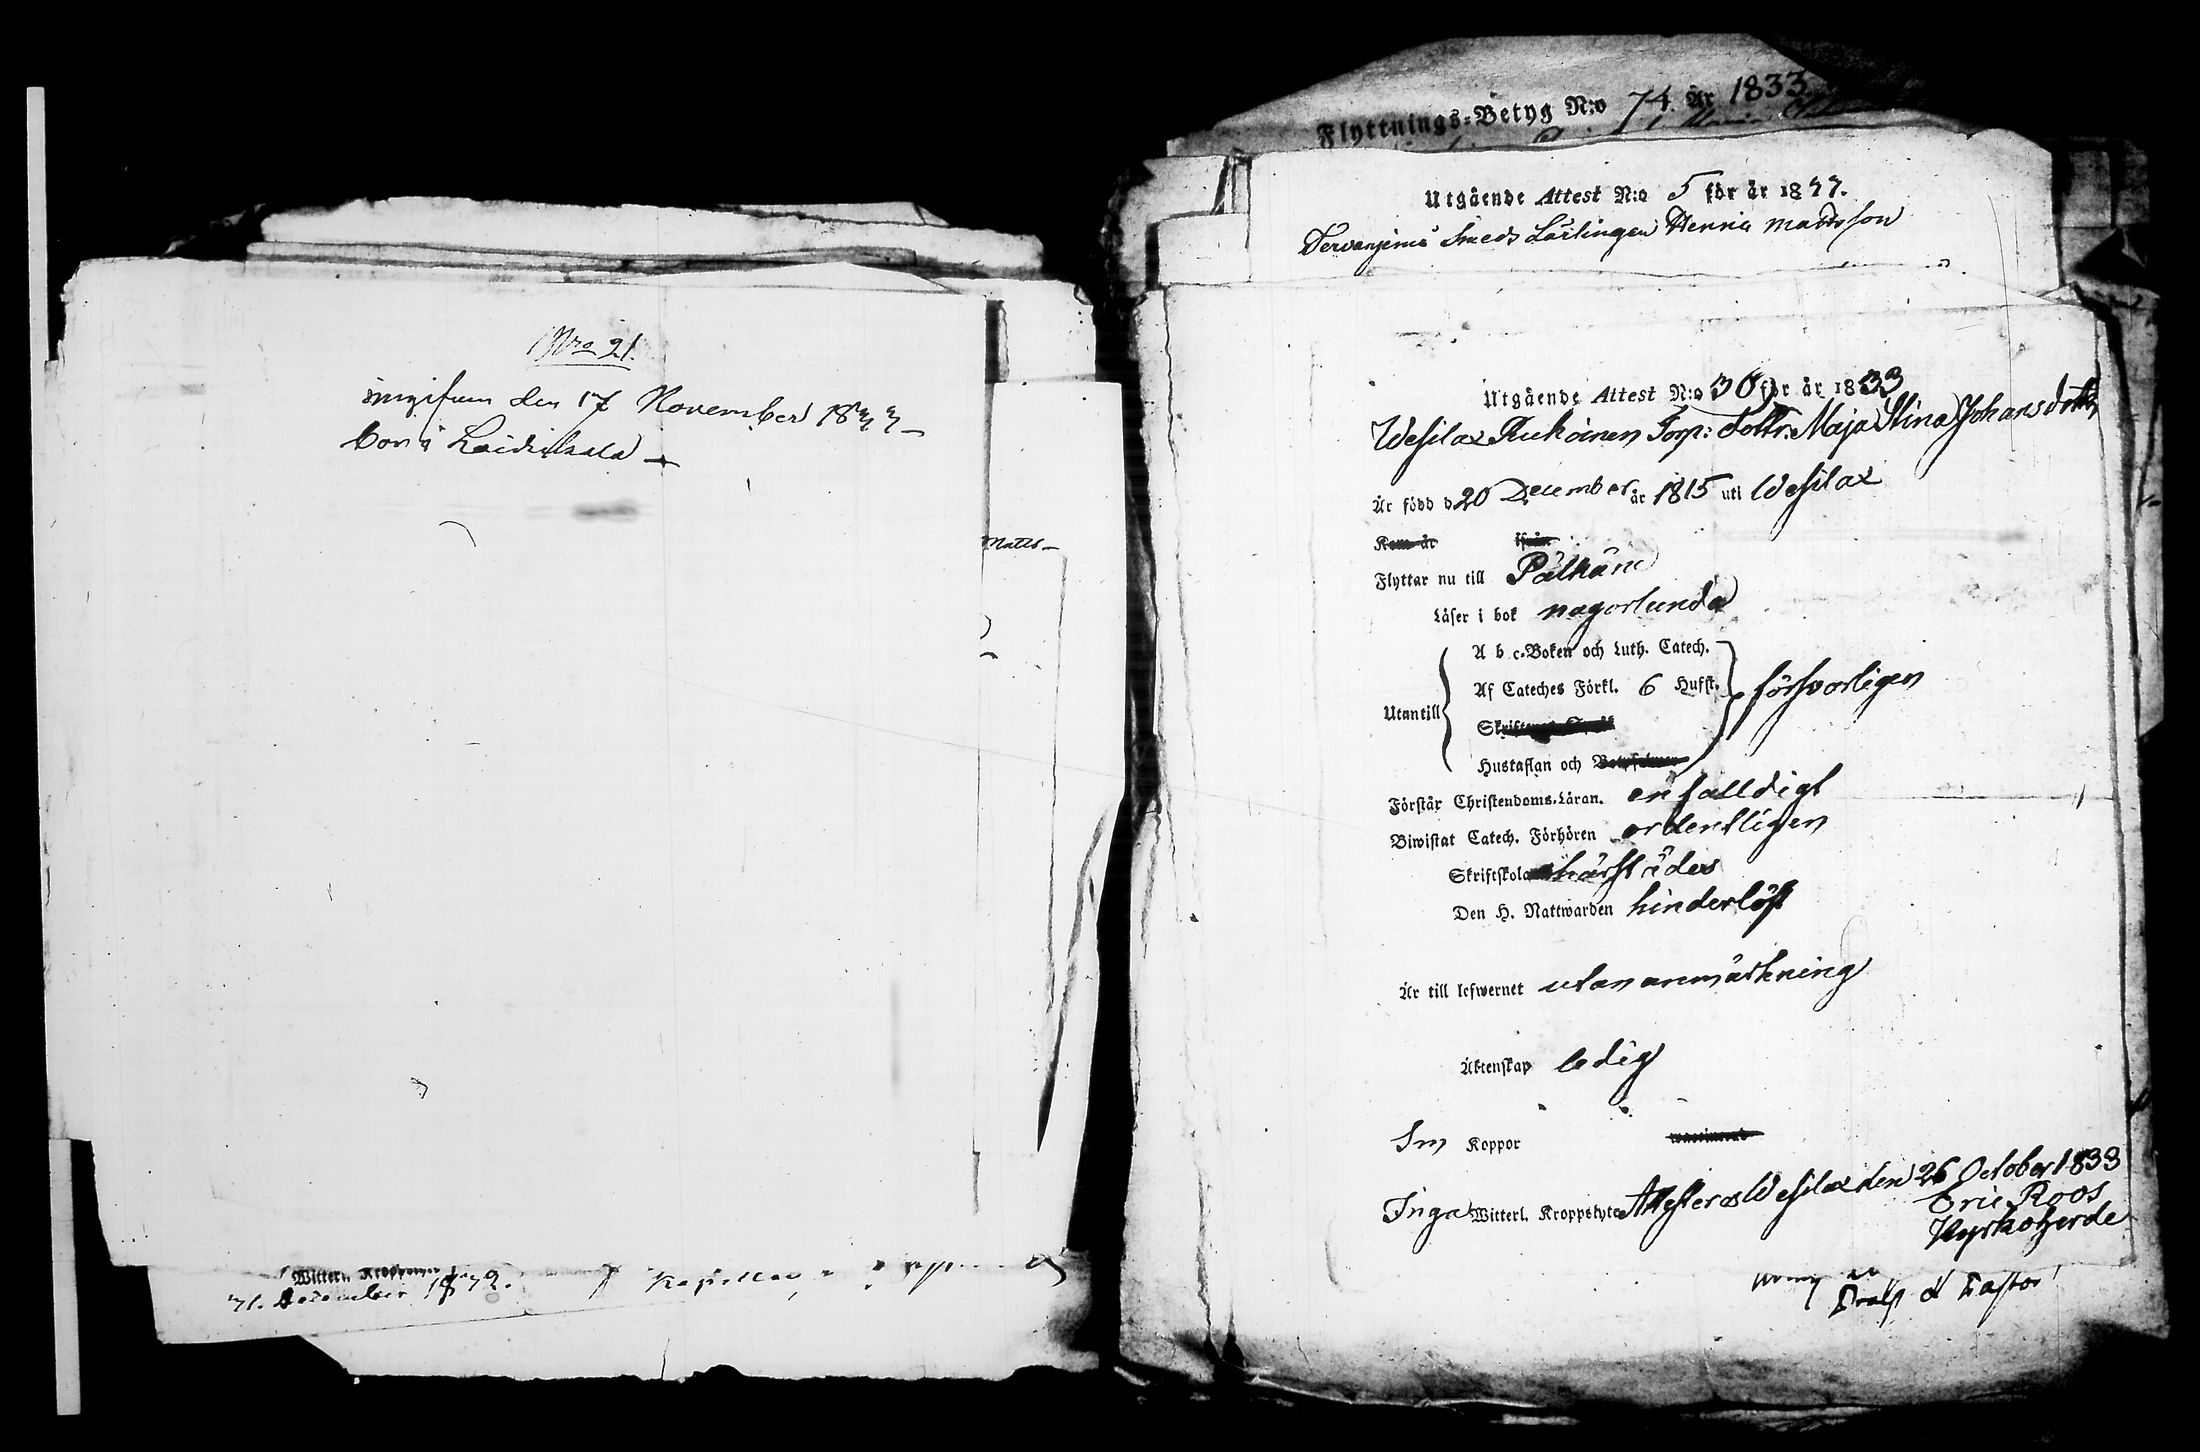 Nro 21.
ingifven den 17 November 1833
bor i Laidikala
Matts
Witterl. Kroppslyte
31. December 1832.
Flyttnings-Betyg N:o 74. År 1833
Utgående Attest N:o 5 för år 1833.
Smeds Lärlingen Henric Mattsson
Utgående Attest N:o 30 för år 1833
Wesilax Torp: Dottr: Maja Stina Johansdotter
Är född d 20 December år 1815 uti Wesilax
Kom år ifrån
Flyttar nu till Pälkäne
Läser i bok någorlunda
A b c-Boken och Luth. Catech.
Af Cateches Förkl. 6 Hufst. försvarligen
Utantill
Hustaflan och
Förstår Christendoms-Läran. enfalldigt
Biwistat Catech. Förhören ordentligen
Skriftskola härstädes
Den H. Nattwarden hinderlöst
Är till lefwernet utan anmärkning
Äktenskap ledig
Koppor
Inga Witterl. Kroppslyte Attesteras Wesilax den 26 October 1833
Eric Roos
Kyrkoherde